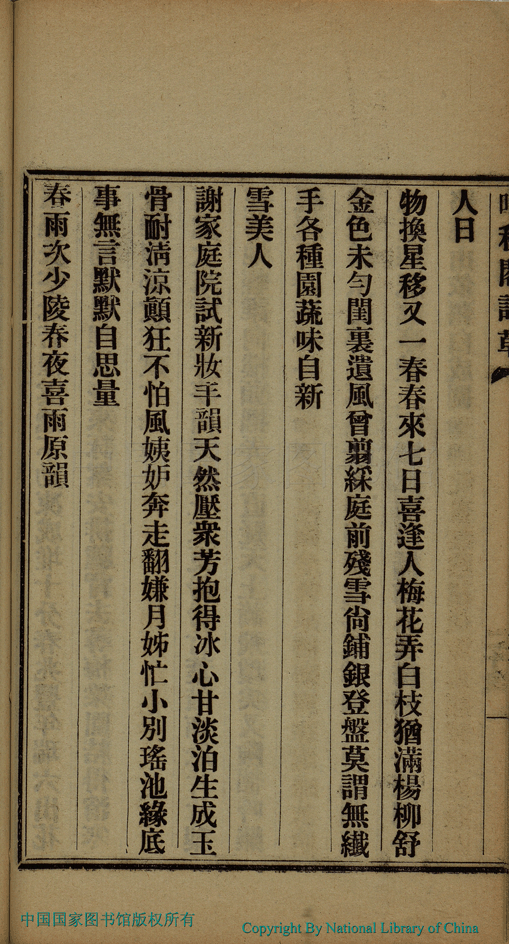 人日
物換星移又一春春來七日喜逢人梅花弄白枝猶滿楊柳舒
金色未勻閨裏遺風曾翦綵庭前殘雪尙鋪銀登盤莫謂無纖
手各種園蔬味自新
雪美人
謝家庭院試新妝丰韻天然壓衆芳抱得冰心甘淡泊生成玉
骨耐淸涼顚狂不怕風姨妒奔走翻嫌月姊忙小別瑤池緣底
事無言默默自思量
春雨次少陵春夜喜雨原韻
中国国家图书馆版权所有
Copyright By National Library of China